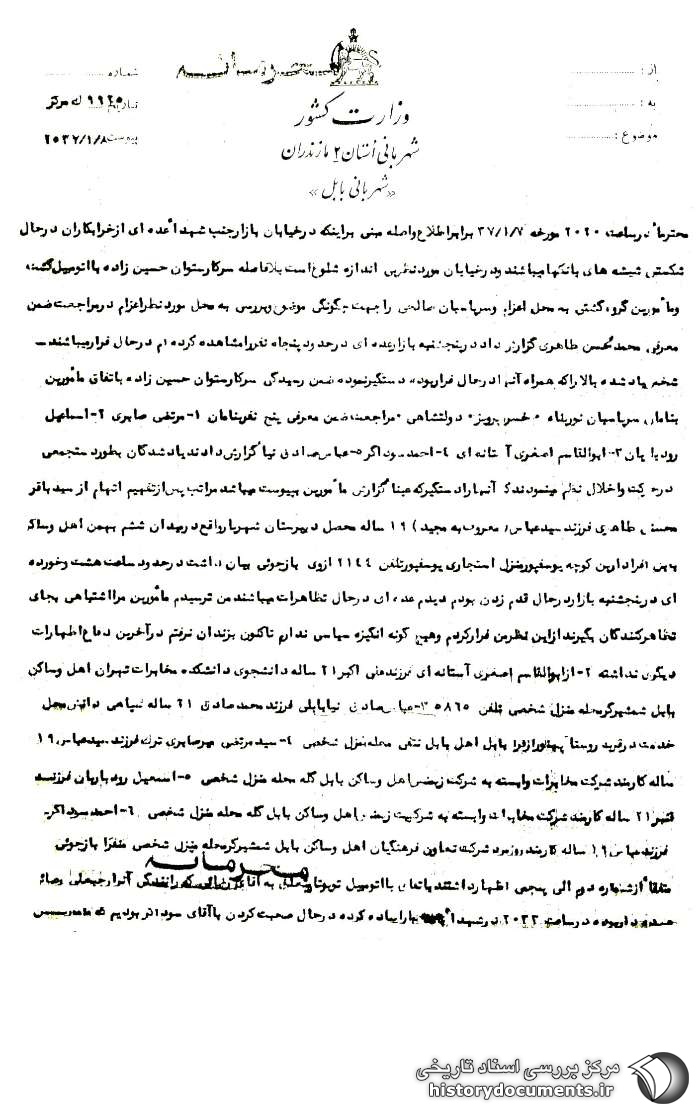 محرمانه
از :
به :
موضوع :
شماره
تاریخ ۱۹۲۵ ك مرکز
پیوست ۲۵۳۷/۱/۸
وزارت کشور
شهربانی استان ۲ مازندران
«شهربانی بابل»
محترماً در ساعت ۲۰۲۰ مورخه ۳۷/۱/۷ برابر اطلاع واصله مبنی براینکه در خیابان بازار جنب شهدا عده ای از خرابکاران در حال
شکستن شیشه های بانکها میباشند و در خیابان مورد نظر بی اندازه شلوغ است بلافاصله سرکار ستوان حسین زاده با اتومبیل گشت
و مأمورین گروه گشتی به محل اعزام و سرپاسبان صالحی را جهت چگونگی موضوع و بررسی به محل مورد نظر اعزام در مراجعت ضمن
معرفی محمد محسن طاهری گزارش داد در پنجشنبه بازار عده ای در حدود پنجاه نفر را مشاهده کرده ام در حال فرار میباشند ــ
شخص یاد شده بالا را که همراه آنها در حال فرار بوده دستگیر نموده ضمن رسیدگی سرکار ستوان حسین زاده باتفاق مأمورین
بنامان سرپاسبان نورپناه محسن پرویز دولتشاهی مراجعت ضمن معرفی پنج نفر بنامان ۱- مرتضی صابری ۲- اسماعیل
رودباریان ۳- ابوالقاسم اصغری آستانه ای ۴- احمد سوداگر ۵- عباس صادقی نیا گزارش دادند یاد شدگان بطور دستجمعی
در حرکت و اخلال نظم مینمودند که آنها را دستگیر که عینا گزارش مأمورین به پیوست میباشد مراتب پس از تفهیم اتهام از سید باقر
محسنی طاهری فرزند سید عباس (معروف به مجید) ۱۹ ساله محصل دبیرستان شهریار واقع در میدان ششم بهمن اهل و ساکن
بابل افرادارین کوچه یوسفپور منزل استجاری یوسفپور تلفن ۲۱۴۴ از وی بازجوئی بیان داشت در حدود ساعت هشت و خورده
ای در پنجشنبه بازار در حال قدم زدن بودم دیدم عده ای در حال تظاهرات میباشند من ترسیدم مأمورین مرا اشتباهی بجای
تظاهر کنندگان بگیرند از این نظر من فرار کردم و هیچ گونه انگیزه سیاسی ندارم تاکنون بزندان نرفتم در آخرین دفاع اظهارات
دیگری نداشته ۲- از ابوالقاسم اصغری آستانه ای فرزند علی اکبر ۲۱ ساله دانشجوی دانشکده مخابرات تهران اهل و ساکن
بابل شمشیرگر محله منزل شخصی تلفن ۵۸۶۵ ۳- عباس صادقی نیا بابلی فرزند محمد صادق ۲۱ ساله سپاهی دانش محل
خدمت در قریه روستا اهل بابل نقیبی محله منزل شخصی ۴- سید مرتضی میر صابری ترک فرزند سید عباس ۱۹
ساله کارمند شرکت مخابرات وابسته به شرکت زیمنس اهل و ساکن بابل گله محله منزل شخصی ۵- اسمعیل رودباریان فرزند
قنبر ۲۱ ساله کارمند شرکت مخابرات وابسته به شرکت زیمنس اهل و ساکن بابل گله محله منزل شخصی ۶- احمد سوداگر
فرزند عباس ۱۹ ساله کارمند روزمزد شرکت تعاون فرهنگیان اهل و ساکن بابل شمشیرگر محله منزل شخصی منفرا بازجوئی
متفقا از شماره دوم الی پنجمی اظهار داشتند باتفاق با اتومبیل تویوتا متعلق به آقای که رانندگی آنرا رجبعلی
عهده دار بوده در ساعت ۲۰۳۲ در شهدا ما را پیاده کرده در حال صحبت کردن با آقای سوداگر بودیم که مأمورین
محرمانه
مرکز بررسی اسناد تاریخی
historydocuments.ir